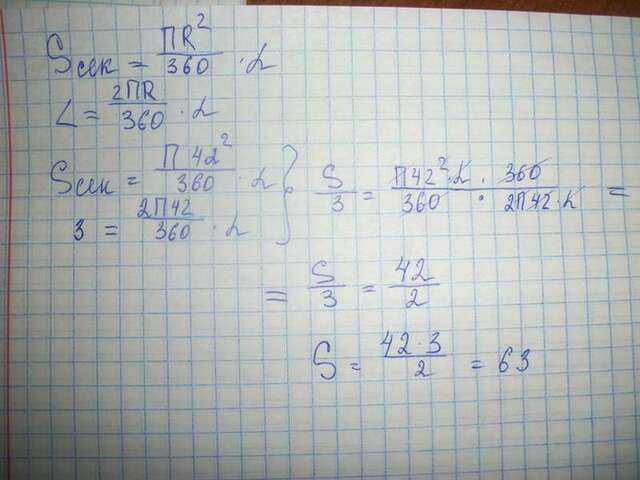 Sсек = ПR²/360 · α
L = 2ПR/360 · α
Sсек = П 42²/360 · α
3 = 2П42/360 · α
S/3 = П42² · α · 360 / 360 · 2П42 · α =
= S/3 = 42/2
S = 42·3/2 = 63